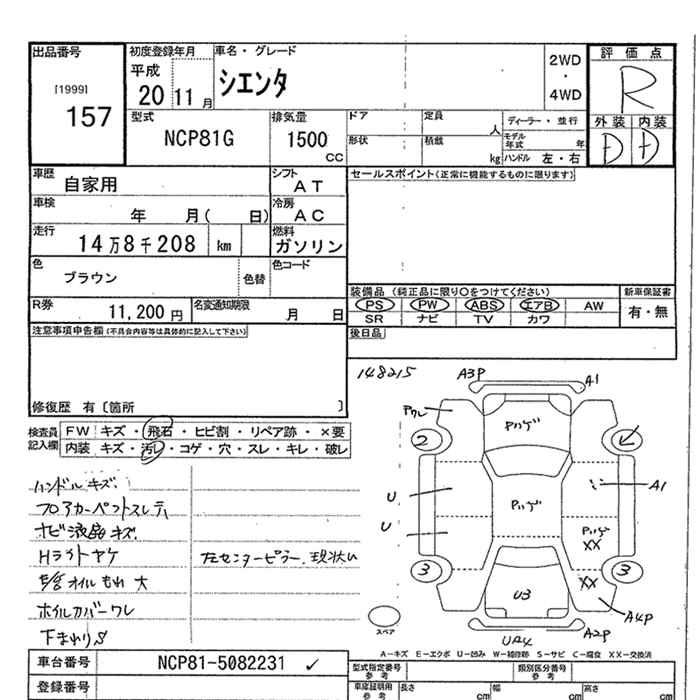 出品番号
[1999]
157
初度登録年月
平成
20 11 月
車名・グレード
シエンタ
2WD
・
4WD
評価点
R
外装 内装
D D
型式
NCP81G
排気量
1500
CC
ドア
定員
人
形状
積載
kg
ディーラー・並行
モデル年式 年
ハンドル 左・右
車歴
自家用
シフト
AT
車検
年 月( 日)
冷房
AC
走行
14万8千208 km
燃料
ガソリン
色
ブラウン
色替
色コード
R券
11,200 円
名変通知期限
月 日
セールスポイント(正常に機能するものに限ります)
装備品 (純正品に限り○をつけてください)
PS PW ABS エアB AW
SR ナビ TV カワ
新車保証書
有・無
後日品
注意事項申告欄(不具合内容等は具体的に記入して下さい)
修復歴 有〔箇所 〕
検査員記入欄
FW キズ・飛石・ヒビ割・リペア跡・×要
内装 キズ・汚レ・コゲ・穴・スレ・キレ・破レ
ハンドルキズ
フロアカーペットスレ
ナビ液晶キズ
Hライトヤケ
オイルもれ 大
ホイルカバーワレ
下まわりS
左センターピラー 現状
148215
A3P
A1
Pハゲ
2
U
Pハゲ
A1
U
Pハゲ
XX
3
XX
3
U3
A4P
UA4
A2P
スペア
A-キズ E-エクボ U-凹み W-補修跡 S-サビ C-腐食 XX-交換済
車台番号
NCP81-5082231 ✓
登録番号
型式指定番号
参考
類別区分番号
参考
車庫証明用
参考
長さ cm
幅 cm
高さ cm